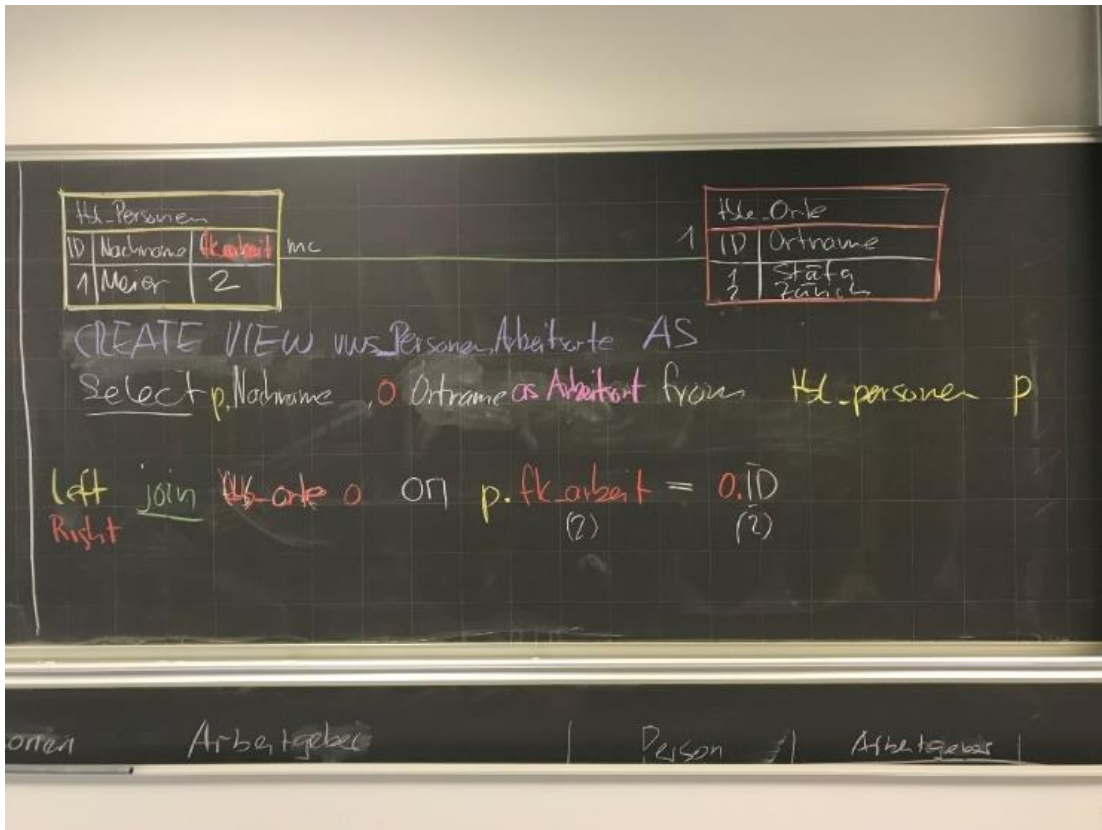 tbl_Personen
ID Nachname fk_arbeit mc
1 Meier 2
tbl_Orte
1 ID Ortname
1 Stäfa
2 Zürich
CREATE VIEW vws_PersonenArbeitsorte AS
Select p.Nachname , O Ortname as Arbeitsort from tbl_personen p
left join tbl_orte o on p.fk_arbeit = O.ID
Right (2) (2)
Arbeitgeber Person Arbeitgeber